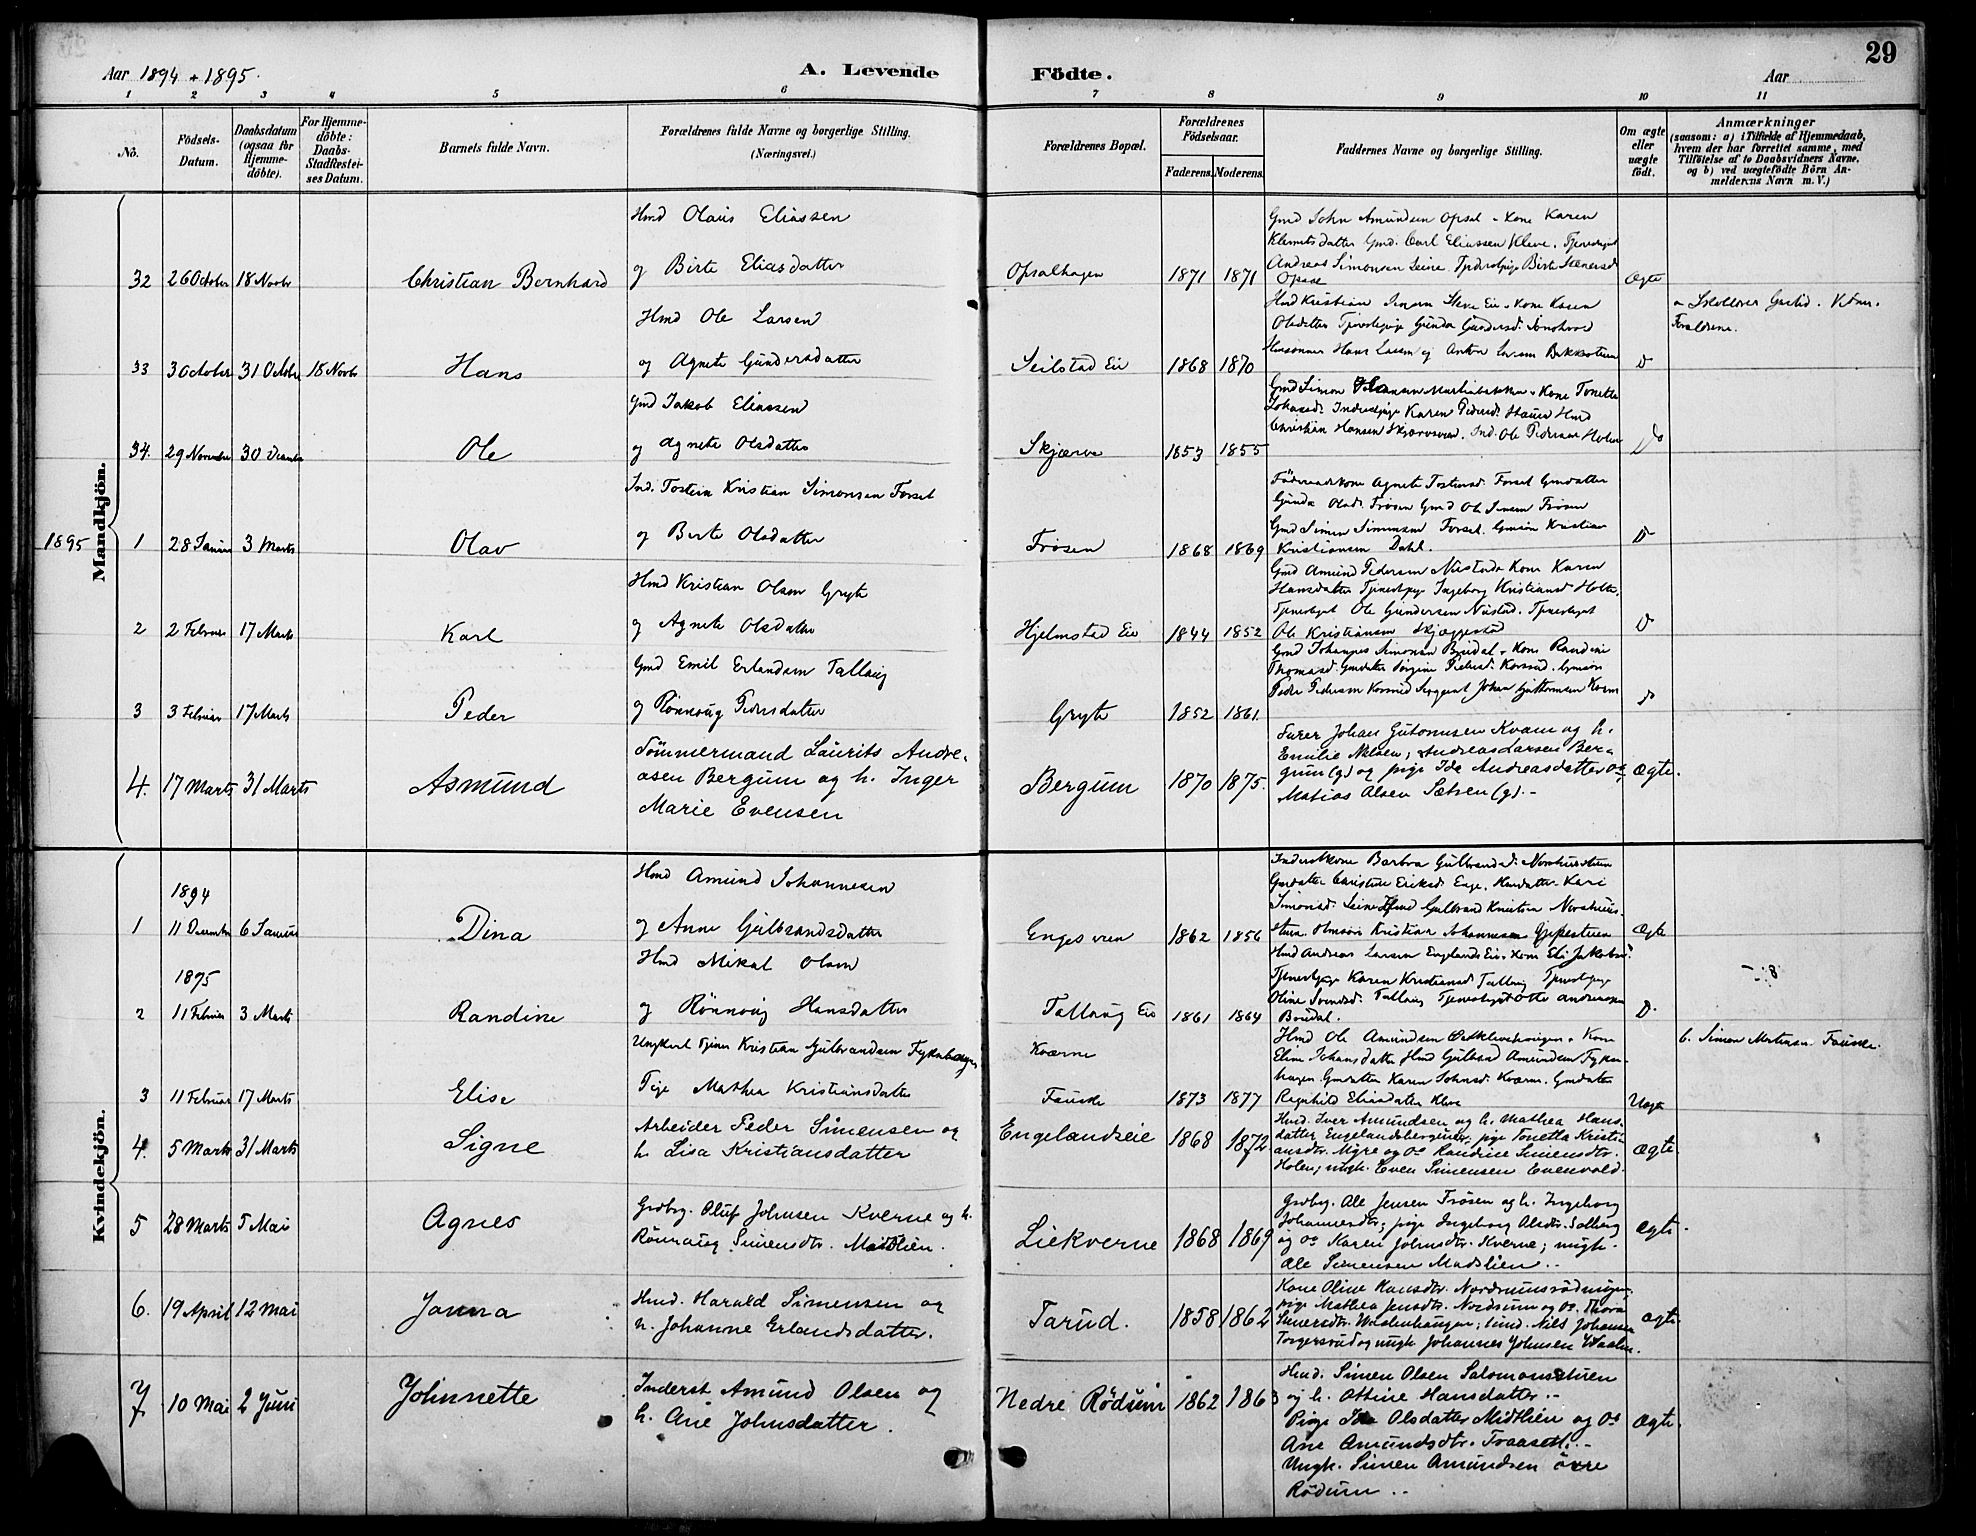 Aar 1894 + 1895.
A. Levende Födte.
Aar
29
1 2 3 4 5 6 7 8 9 10 11
No.
Födsels-Datum.
Daabsdatum (ogsaa for Hjemme-döbte).
For Hjemme-döbte: Daabs-Stadfæstei-ses Datum.
Barnets fulde Navn.
Forældrenes fulde Navne og borgerlige Stilling. (Næringsvei.)
Forældrenes Bopæl.
Forældrenes Födselsaar.
Faderens. Moderens.
Faddernes Navne og borgerlige Stilling.
Om ægte eller uægte födt.
Anmærkninger
(saasom: a) i Tilfælde af Hjemmedaab,
hvem der har forrettet samme, med
Tilföielse af to Daabsvidners Navne,
og b) ved uægtefödte Börn An-
melderens Navn m. V.)
Mandkjön.
32 26 October 18 Novbr Christian Bernhard
Hmd Olaus Eliassen
og Birte Eliasdatter
Opsalhagen 1871 1871
Gmd John Amundsen Opsal + Kone Karen
Klemetsdatter Gmd. Carl Eliassen Kleve. Tjenestgut
Andreas Simonsen Leine. Tjenestpige Birte Stenersd.
Opsal
Ægte
33 3 October 31 October 18 Novbr Hans
Hmd Ole Larsen
og Agnete Gundersdatter
Seilstad Eie 1868 1870
Hmd Kristian Jensen Steve Eie + Kone Karen
Olsdatter Tjenestepige Gunda Gundersd.
Hans Larsen og Anton Larsen
D
Forældrene.
34. 29 November 30 Decembr Ole
Gmd Jakob Eliassen
og Agnete Olsdatter
Skjærve 1853 1855
Gmd Simon + Kone Tonette
Johansd. Karen Pedersd. Hmd
Christian Hansen Ind. Ole Pedersen Holen
Do
1895
1 28 Januar 3 Marts Olav
Ind. Tostein Kristian Simonsen Forset
og Berte Olsdatter
Frøsen 1868 1869
Föderaadskone Agnete Tostensd. Forset Gmdatter
Gunda Olsd. Frøsen Gmd Ole Jensen Frøsen
Gmd Simen Simensen Forset. Gmsön Kristian
Kristiansen Dahl.
D
2 2 Februar 17 Marts Karl
Hmd Kristian Olsen Gryte
og Agnete Olsdatter
Hjelmstad Eie 1844 1852
Gmd Amund Pedersen Nustad + Kone Karen
Hansdatter Tjenestpige Ingeborg Kristiansd Holte.
Tjenestgut Ole Gundersen Nustad. Tjenestgut
Ole Kristiansen Skjæggestad
D
3 3 Februar 17 Marts Peder
Gmd Emil Erlandsen Tallaug
og Rönnoug Pedersdatter
Gryte 1852 1861.
Gmd Johannes Simonsen Bredal + Kone Randine
Thomasd. Gmdatter Jörgine Pedersd. Korsrud. Gmsön
Peder Pedersen Korsrud Sergeant Johan Guttormsen Kvam
D
4. 17 Marts 31 Marts Asmund
Tömmermand Laurits Andre-
asen Bergum og h. Inger
Marie Evensen
Bergum 1870 1875.
Furer Johan Gutomsen Kvam og h.
Emilie Nilsen; Andreas Larsen Ber-
gum (g) og pige Ida Andreasdatter os
Matias Olsen Sætren (g). -
Ægte.
Kvindekjön.
1894
1 11 December 6 Januar Dina
Hmd Amund Johannesen
og Anne Gulbrandsdatter
Engesveen 1862 1856
Inderstkone Barbra Gulbrandsd. Norshusstuen
Gmdatter Christine Eriksd. Enge. Hmdatter Kari
Simonsd. Leine Hmd Gulbrand Knutsen Norshus-
stuen. Hmsön Kristian Johannesen Gjipestuen
Ægte
1895
2 11 Februar 3 Marts Randine
Hmd Mikal Olsen
og Rönnoug Hansdatter
Tallaug Eie 1861 1864
Hmd Andreas Larsen Englands Eie + Kone Eli Jakobsd.
Tjenestpige Karen Kristiansd. Tallaug Tjenestpige
Oline Svendsd. Tallaug Tjenestgut Otte Andersen
Bredal.
D.
3 11 Februar 17 Marts Elise
Ungkarl Tjener Kristian Gulbrandsen Fykenhagen
Pige Mathea Kristiansdatter
Kværne
Fauske 1873 1877
Hmd Ole Amundsen + Kone
Eline Johansdatter Hmd Gulbrand Amundsen Fyken-
hagen Gmdatter Karen Johnsd. Kværne. Gmdatter
Ragnhild Eliasdatter Kleve
Uægte
b. Simon Mortensen Fauske.
4. 5 Marts 31 Marts Signe
Arbeider Peder Simensen og
h. Lisa Kristiansdatter
Engelandseie 1868 1872
Hmd. Iver Amundsen og h. Mathea Hans-
datter Engelandsbergene, pige Tonetta Kristi-
ansdtr. Myre og os Randine Simensdtr.
Holen; ungk. Even Simensen Evenvold.
Ægte.
5 28 Marts 5 Mai Agnes
Grdbrg. Oluf Johnsen Kverne og h.
Rönnaug Simensdtr. Madslien.
Liekverne 1868 1869
Grdbrg. Ole Jensen Frösen og h. Ingeborg
Johannesdtr; pige Ingeborg Olsdtr. Solberg
og os Karen Johnsdtr. Kverne; ungk.
Ole Simensen Madslien..
Ægte.
6. 19 April 12 Mai Janna
Hmd. Harald Simensen og
h. Johanne Erlandsdatter.
Tarud. 1858 1862
Kone Oline Hansdtr. Nordrumsrødningen,
pige Mathea Jensdtr. Nordrum og os. Thora
Stenersdtr. ; hmd. Nils Johansen
Torgersrud og ungk. Johannes Johnsen Waalen.
ægte.
7 10 Mai 2 Juni Johnnette
Inderst Amund Olsen og
h. Ane Johnsdatter.
Nedre Rödum 1862 1863
Hmd. Simen Olsen Salomonstuen
og h. Ottine Hansdatter. -
Pige Ida Olsdatter Midtlien og Os
Ane Amundsdtr. Traaset. -
Ungk. Simen Amundsen övre
Rödum ..
Ægte.